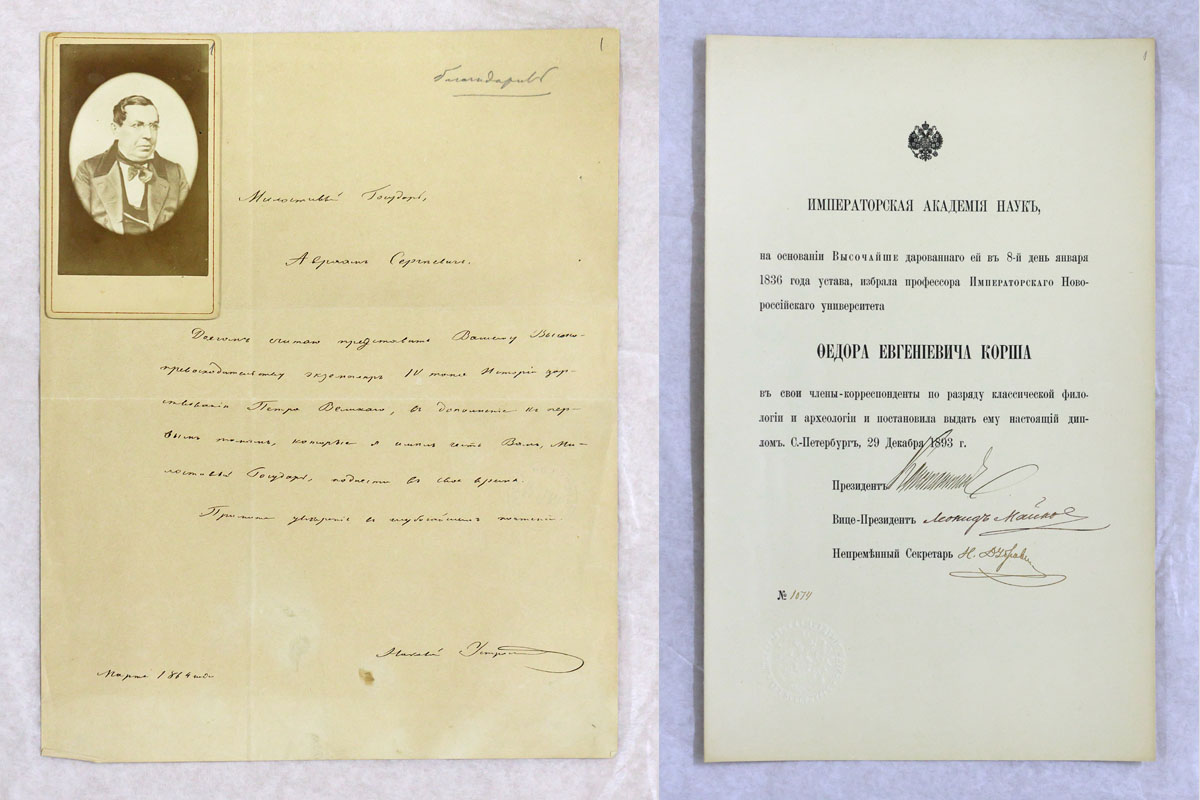 1
1
Милостивый Государь,
Авраамъ Сергѣевичъ.
Долгомъ считаю представить Вашему Высоко-
превосходительству экземпляръ IV тома Исторіи цар-
ствованія Петра Великаго, въ дополненіе къ пер-
вымъ томамъ, которые я имѣлъ честь Вамъ, Ми-
лостивый Государь, поднести въ свое время.
увѣреніе въ глубочайшемъ почтеніи
Марта 1864 года
1
ИМПЕРАТОРСКАЯ АКАДЕМІЯ НАУКЪ,
на основаніи Высочайше дарованнаго ей въ 8-й день января
1836 года устава, избрала профессора Императорскаго Ново-
россійскаго университета
ѲЕДОРА ЕВГЕНІЕВИЧА КОРША
въ свои члены-корреспонденты по разряду классической фило-
логіи и археологіи и постановила выдать ему настоящій дип-
ломъ. С.-Петербургъ, 29 Декабря 1893 г.
Президентъ
Вице-Президентъ Леонидъ Майковъ
Непремѣнный Секретарь Н. Дубровинъ
№ 1074